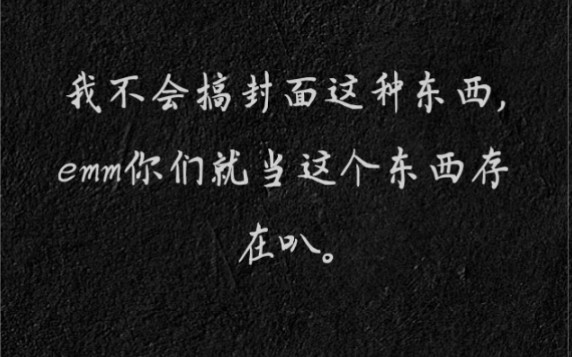 我不会搞封面这种东西,
emm你们就当这个东西存
在叭。